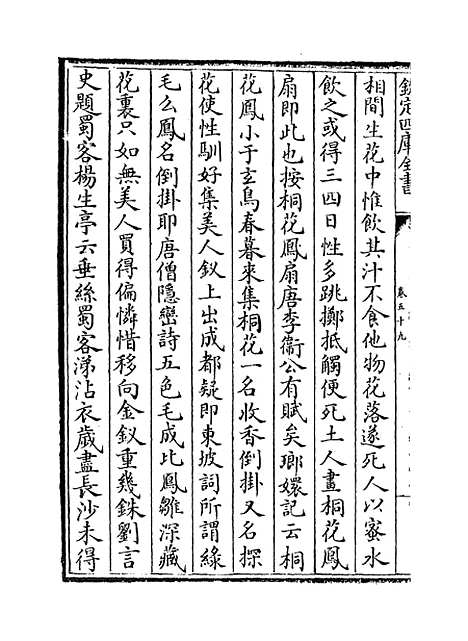 欽定四庫全書
卷五十九
相間生花中惟飲其汁不食他物花落遂死人以蜜水
飲之或得三四日性多跳擲抵觸便死土人畫桐花鳳
扇即此也按桐花鳳扇唐李衞公有賦矣瑯嬛記云桐
花鳳小于玄鳥春暮來集桐花一名收香倒掛又名探
花使性馴好集美人釵上出成都疑即東坡詞所謂緑
毛么鳳名倒掛耶唐僧隱巒詩五色毛成比鳳雛深藏
花裏只如無美人買得偏憐惜移向金釵重幾銖劉言
史題蜀客楊生亭云垂絲蜀客涕沾衣歲盡長沙未得